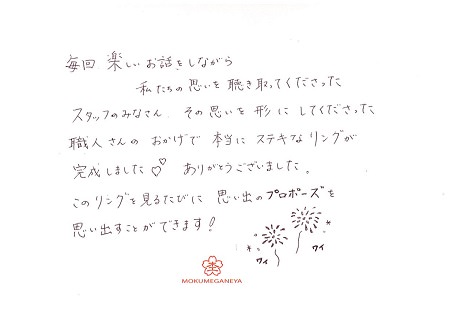 毎回 楽しいお話をしながら
私たちの思いを聴き取ってくださった
スタッフのみなさん、その思いを形にしてくださった
職人さんのおかげで本当にステキなリングが
完成しました♡♡ ありがとうございました。
このリングを見るたびに 思い出のプロポーズを
思い出すことができます!
ワイ ワイ
MOKUMEGANEYA